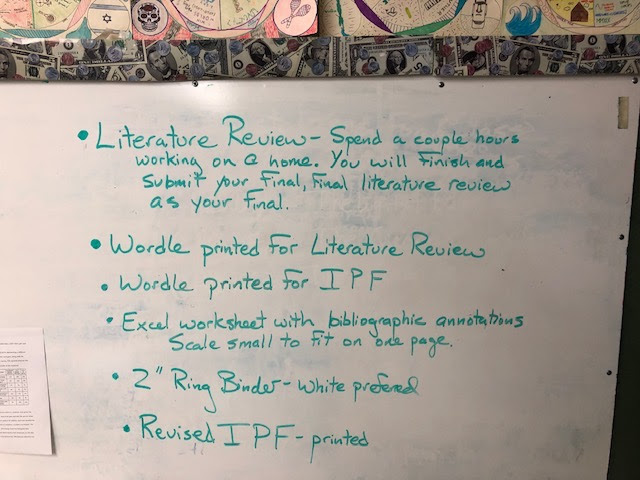 • Literature Review - Spend a couple hours
working on @ home. You will Finish and
submit your Final, Final literature review
as your Final.
• Wordle printed for Literature Review
• Wordle printed for IPF
• Excel worksheet with bibliographic annotations
Scale small to fit on one page.
• 2" Ring Binder - white preferred
• Revised IPF - printed